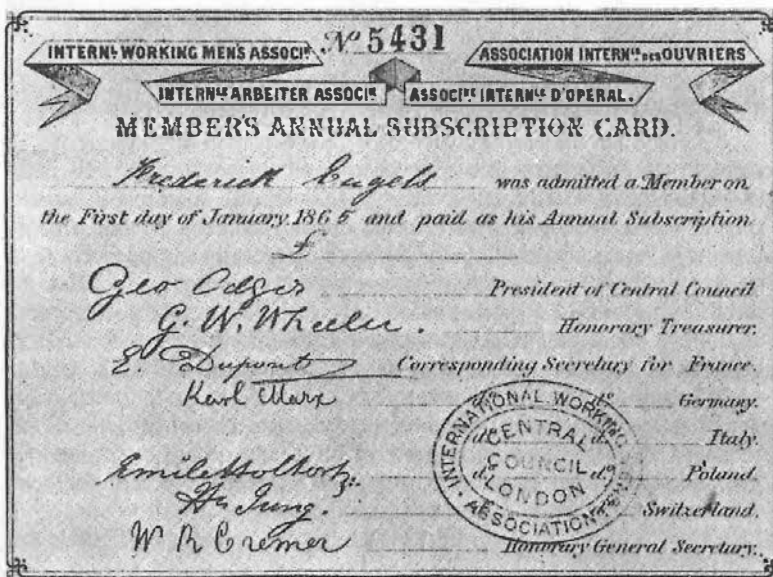 Nº 5431
INTERNL WORKING MEN'S ASSOCIN.
ASSOCIATION INTERNLE DES OUVRIERS
INTERNLE ARBEITER ASSOCIN
ASSOCINE INTERNLE D'OPERAL.
MEMBER'S ANNUAL SUBSCRIPTION CARD.
Frederick Engels was admitted a Member on
the First day of January 1865 and paid as his Annual Subscription
£
Geo Odger President of Central Council
G. W. Wheeler. Honorary Treasurer.
E. Dupont Corresponding Secretary for France.
Karl Marx do do Germany.
do do Italy.
Emile Holtorp do do Poland.
Hn Jung. do Switzerland.
W R Cremer Honorary General Secretary.
INTERNATIONAL WORKING MEN'S ASSOCIATION
CENTRAL
COUNCIL
LONDON